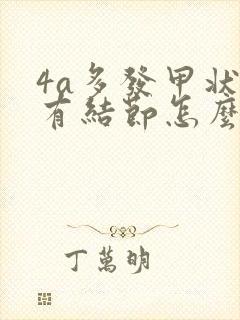 4a多發甲狀
有結節怎麼
丁萬明